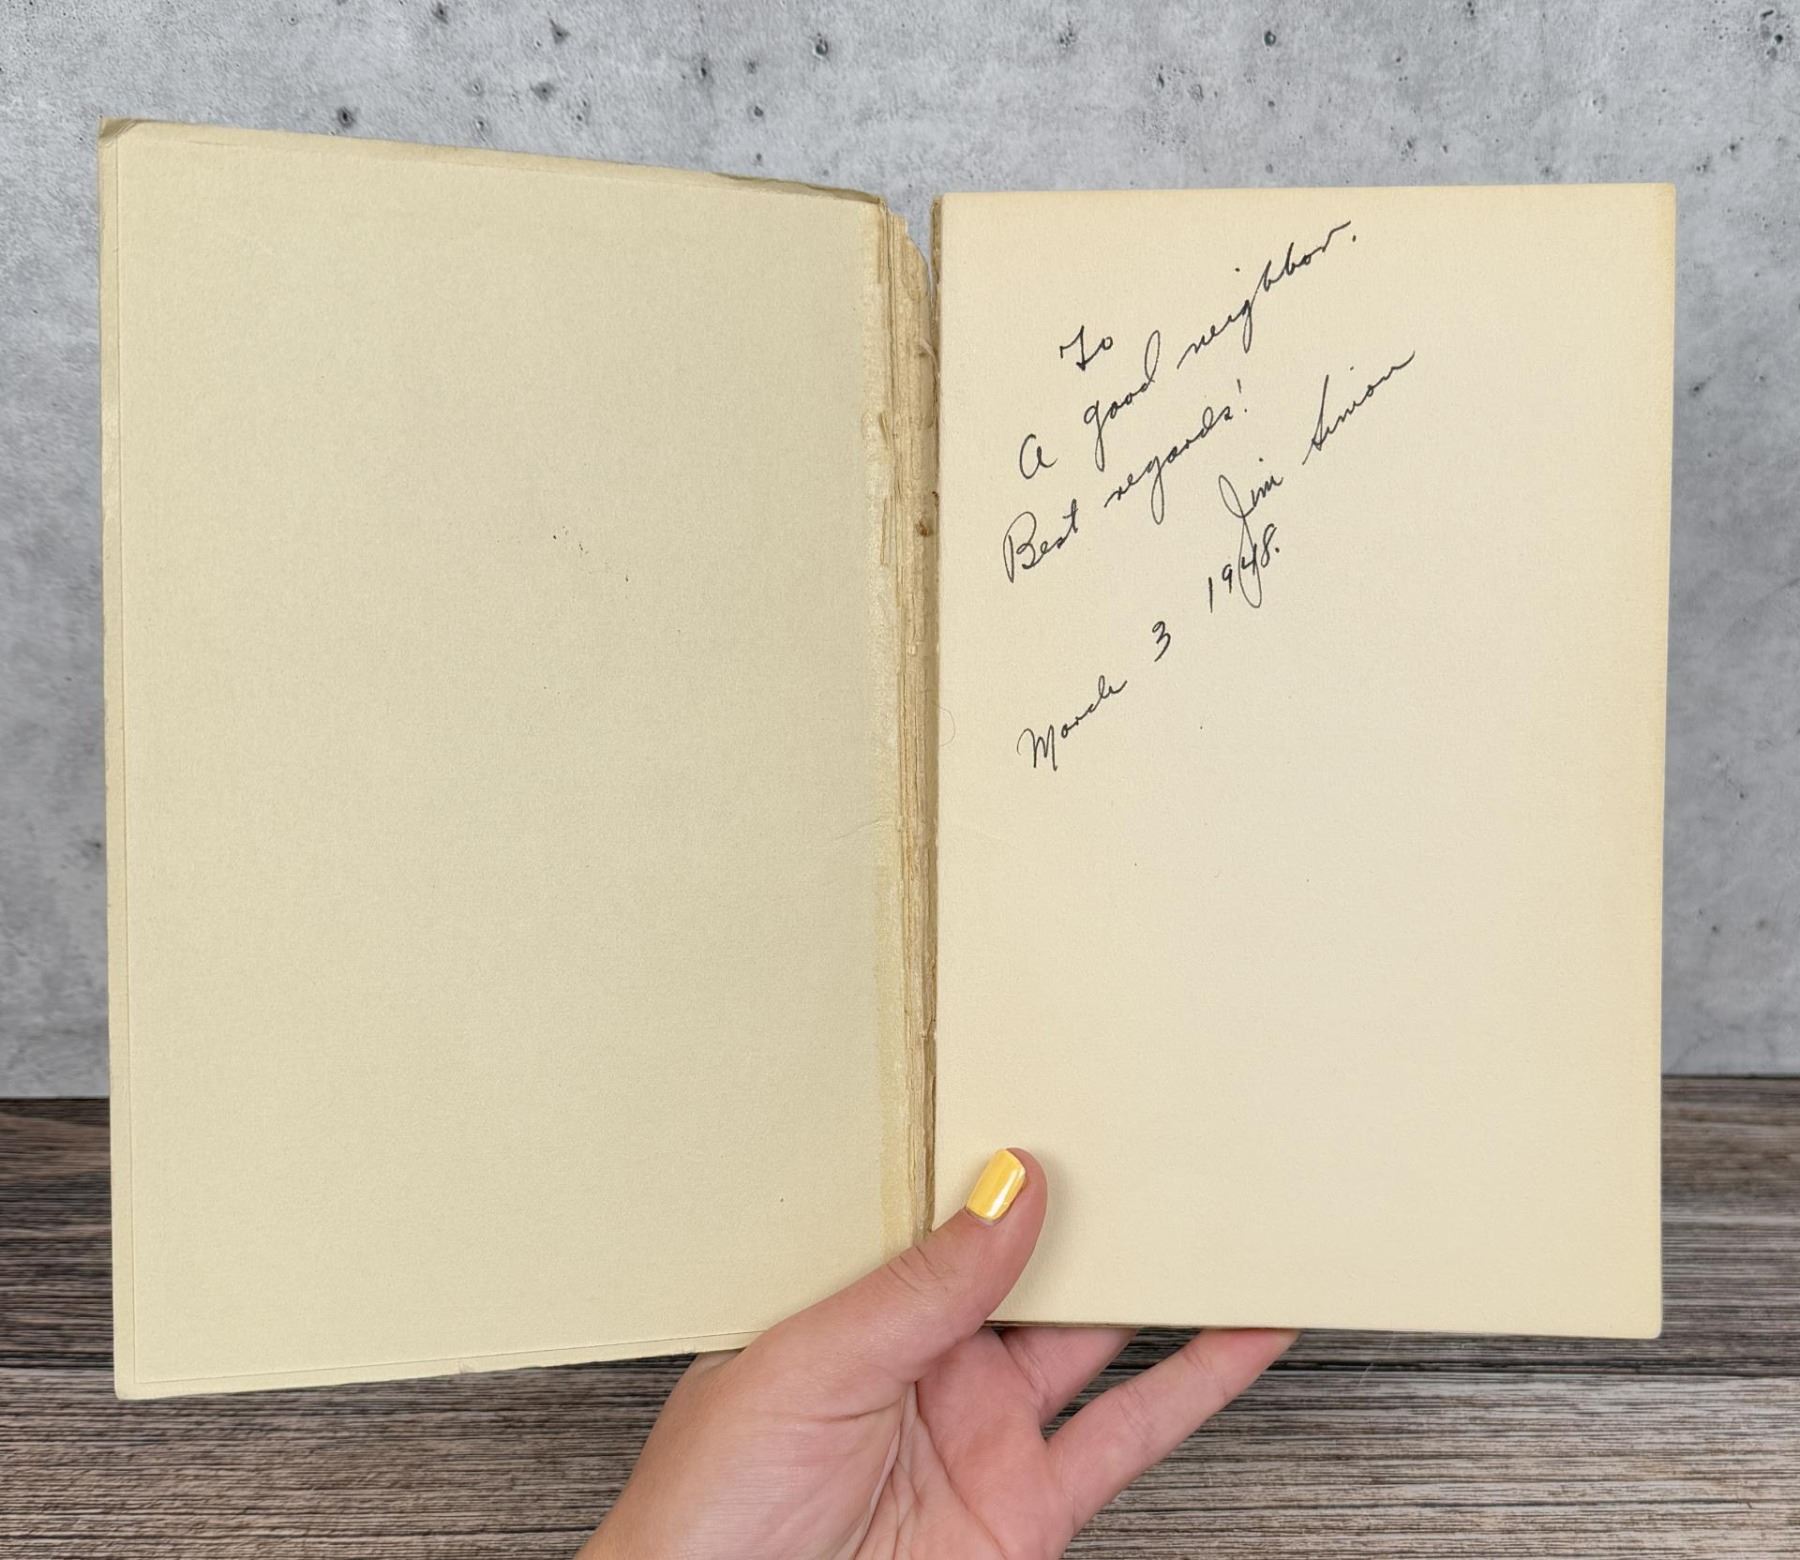 To
A good neighbor.
Best regards!
Jim Simon
March 3 1948.